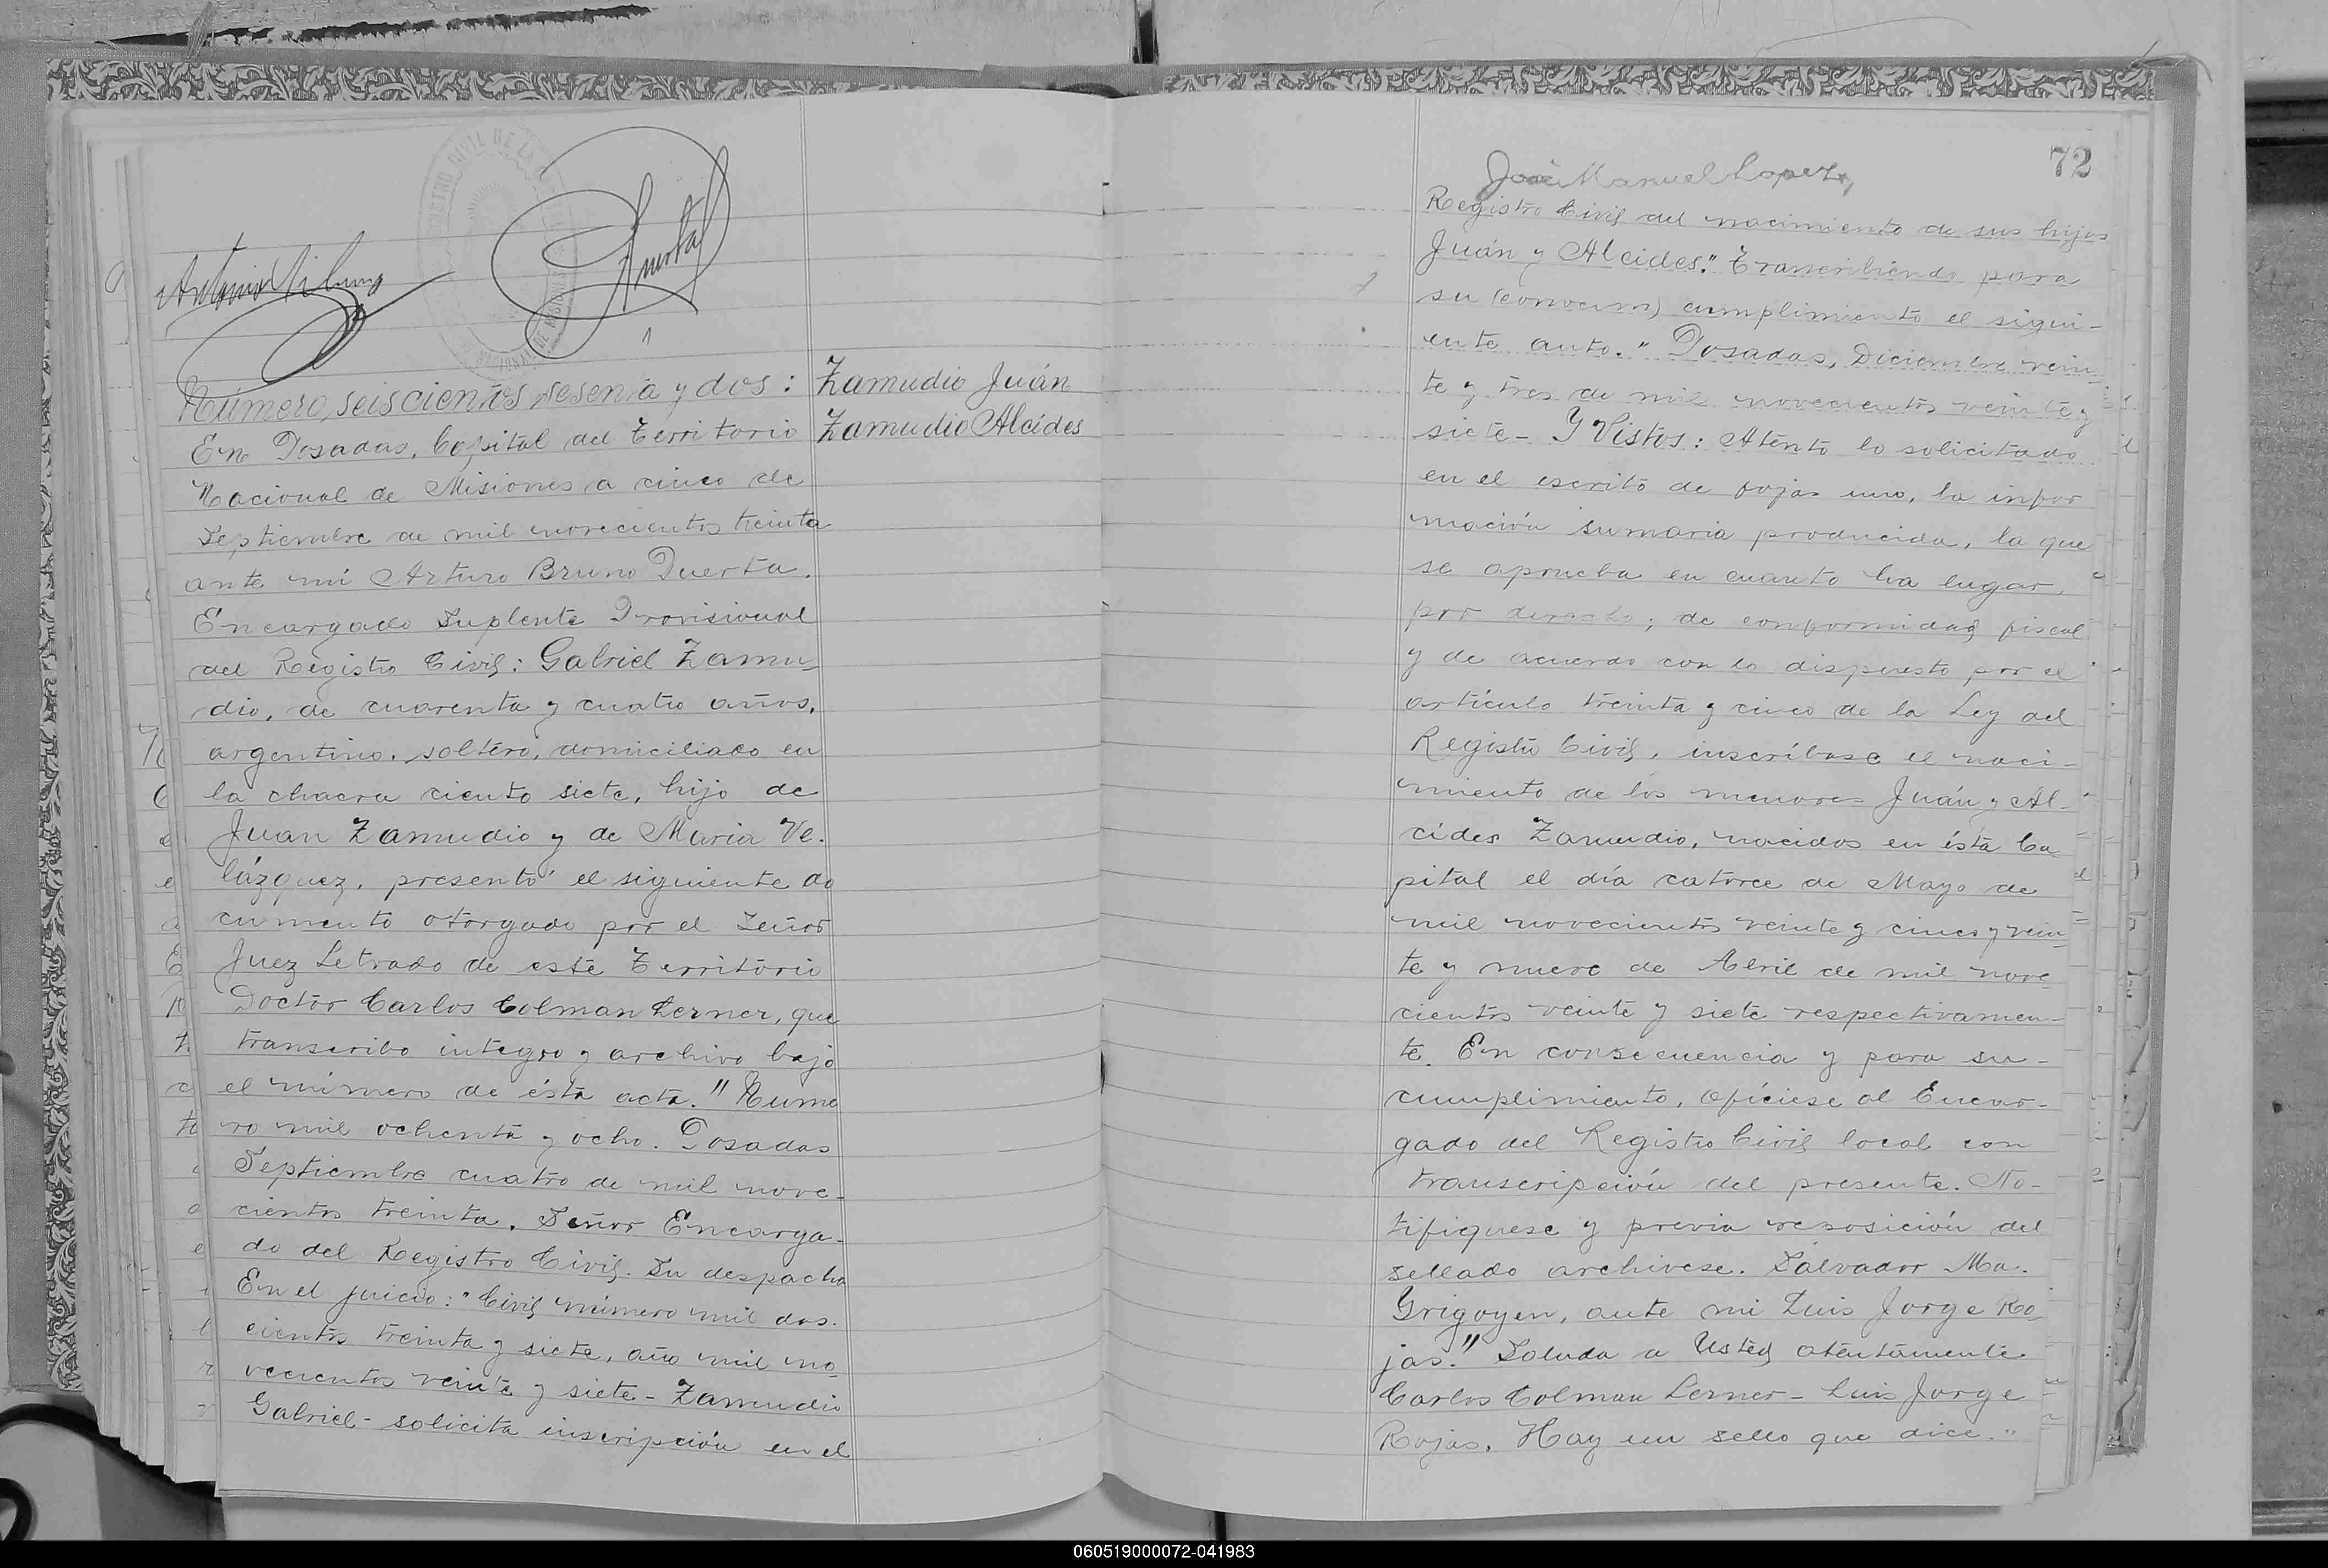 Número, seiscientos sesenta y dos:
Zamudio Juán
Zamudio Alcídes
En Posadas, Capital del Territorio
Nacional de Misiones a cinco de
Septiembre de mil novecientos treinta
ante mí Arturo Bruno Puerta.
Encargado Suplente Provisional
del Registro Civil: Gabriel Zamu-
dio, de cuarenta y cuatro años,
argentino, soltero, domiciliado en
la chacra ciento siete, hijo de
Juan Zamudio y de Maria Ve-
lázquez, presentó el siguiente do
cumento otorgado por el Señor
Juez Letrado de este Territorio
Doctor Carlos Colman Lerner, que
transcribo integro y archivo bajo
el número de ésta acta." Núme
ro mil ochenta y ocho. Posadas
Septiembre cuatro de mil nove-
cientos treinta. Señor Encarga-
do del Registro Civil. Su despacho
En el juicio: "Civil número mil dos-
cientos treinta y siete, año mil no-
vecientos veinte y siete - Zamudio
Gabriel - solicita inscripción en el
72
José Manuel Lopez
Registro Civil del nacimiento de sus hijos
Juán y Alcides." Transcribiendo para
su cumplimiento el sigui-
ente auto. "Posadas, Diciembre vein-
te y tres de mil novecientos veinte y
siete - Y Vistos: Atento lo solicitado
en el escrito de fojas uno, la infor
mación sumaria producida, la que
se aprueba en cuanto ha lugar
por derecho; de conformidad fiscal
y de acuerdo con lo dispuesto por el
artículo treinta y cinco de la Ley del
Registro Civil, inscríbase el naci-
miento de los menores Juán y Al-
cides Zamudio, nacidos en ésta Ca
pital el día catorce de Mayo de
mil novecientos veinte y cinco y vein-
te y nueve de Abril de mil nove-
cientos veinte y siete respectivamen-
te. En consecuencia y para su-
cumplimiento, ofíciese al Encar-
gado del Registro Civil local con
transcripción del presente. No-
tifiquese y previa reposición del
sellado archivese. Salvador Ma.
Yrigoyen, ante mi Luis Jorge Ro-
jas." Saluda a Usted atentamente
Carlos Colman Lerner - Luis Jorge
Rojas. Hay un sello que dice."
060519000072-041983